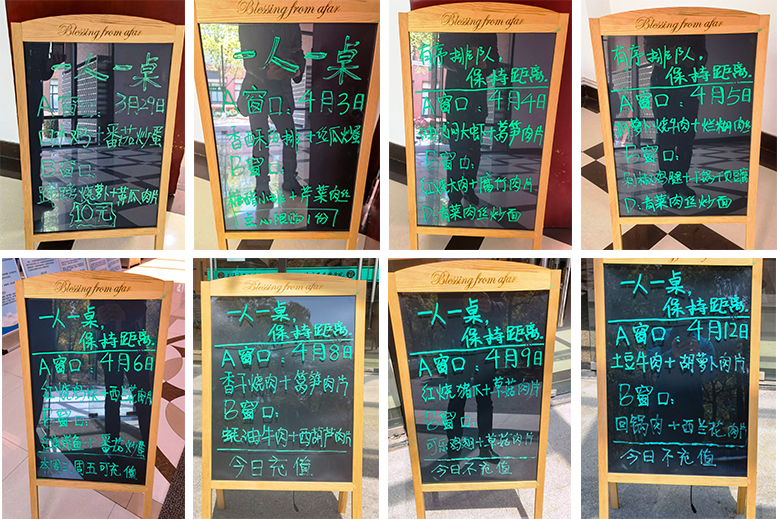 Blessing from afar
一人一桌
A窗口：3月29日
+番茄炒蛋
B窗口：
烧萝卜+黄瓜肉片
10元
Blessing from afar
一人一桌
A窗口：4月3日
香酥鸡排+丝瓜炒蛋
B窗口：
+芹菜肉丝
限购1份
Blessing from afar
有序排队，
保持距离
A窗口：4月4日
大虾+莴笋肉片
B窗口：
红烧大肉+腐竹肉片
D：青菜肉丝炒面
Blessing from afar
有序排队，
保持距离
A窗口：4月5日
烧牛肉+烂糊肉丝
B窗口：
鸡腿+
D：青菜肉丝炒面
Blessing from afar
一人一桌，
保持距离
A窗口：4月6日
红烧鸡块+西兰花肉片
B窗口：
+番茄炒蛋
本周三周五可充值
Blessing from afar
一人一桌，
保持距离
A窗口：4月8日
香干烧肉+莴笋肉片
B窗口：
蚝油牛肉+西葫芦肉片
今日充值
Blessing from afar
一人一桌，
保持距离
A窗口：4月9日
红烧猪爪+草菇肉片
B窗口：
可乐鸡翅+草菇肉片
今日不充值
一人一桌，
保持距离
A窗口：4月12日
土豆牛肉+胡萝卜肉片
B窗口：
回锅肉+西兰花肉片
今日不充值